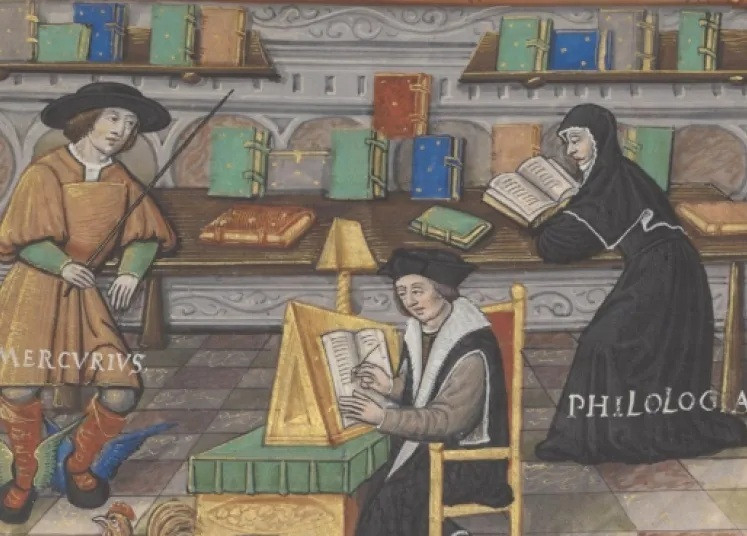 MERCVRIVS.
PHILOLOGIA